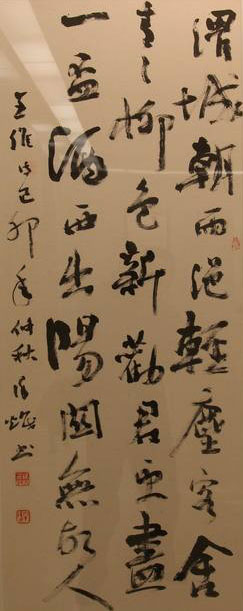 渭城朝雨浥輕塵客舍
青々柳色新勸君更盡
一盃酒西出陽關無故人
王維詩己卯年仲秋